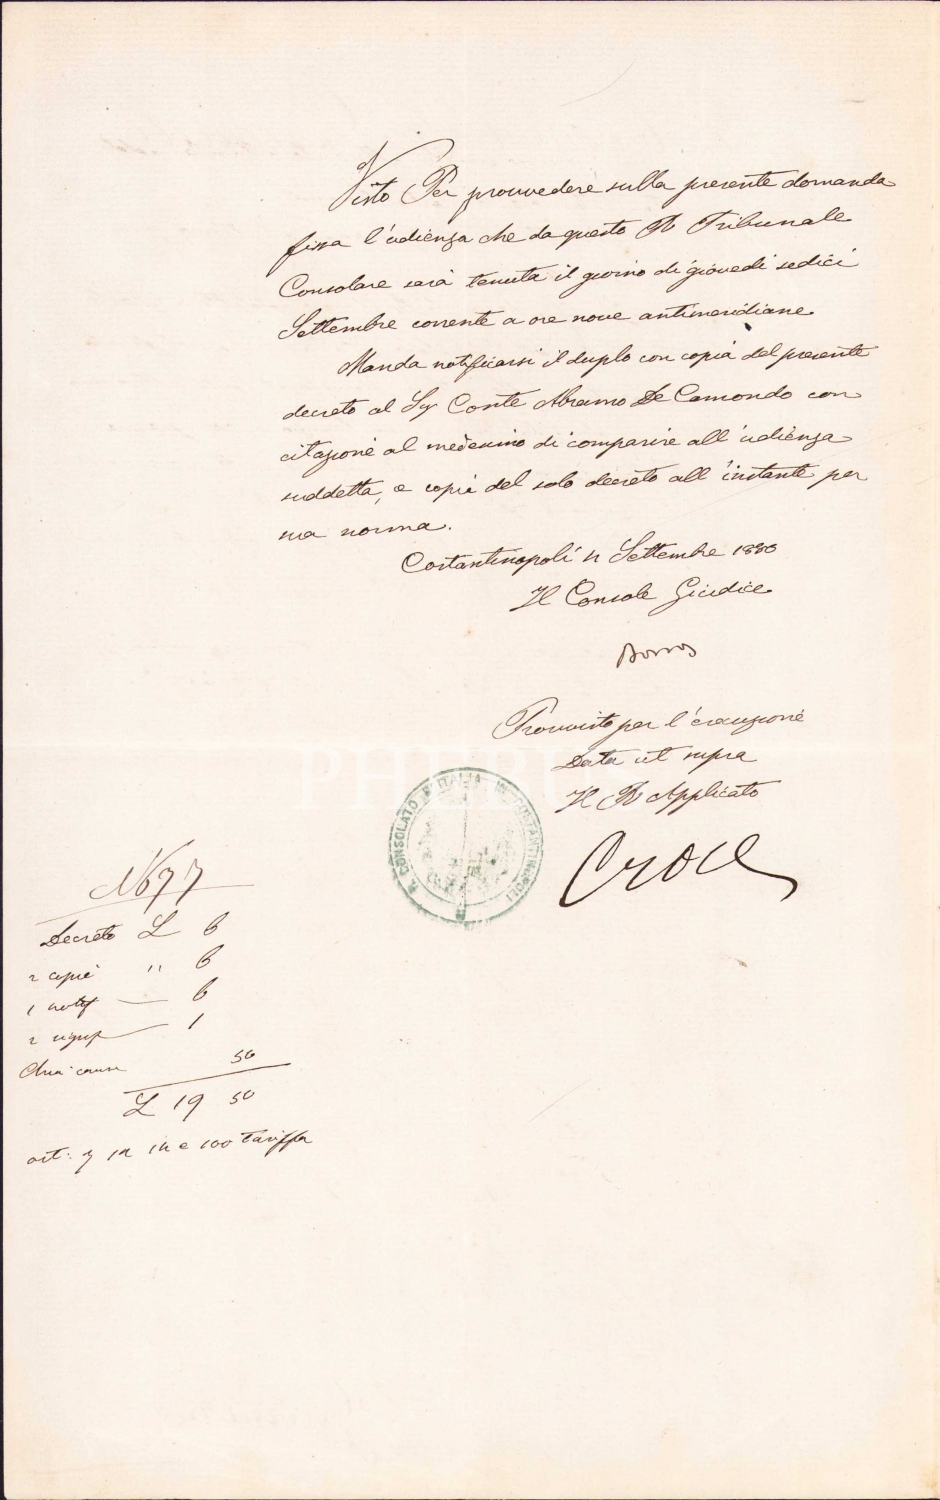 Visto Per provvedere sulla presente domanda
fissa l'udienza che da questo R Tribunale
Consolare sarà tenuta il giorno di giovedì sedici
Settembre corrente a ore nove antimeridiane.
Manda notificarsi il duplo con copia del presente
decreto al Sig Conte Abramo De Camondo con
citazione al medesimo di comparire all'udienza
suddetta, e copia del solo decreto all'instante per
sua norma.
Costantinopoli Settembre 1880
Il Console Giudice
Provvisto per l'esecuzione
Data ut supra
Il R Applicato
Croce
R. CONSOLATO D'ITALIA IN COSTANTINOPOLI
PHEBUS
N 677
Decreto L 6
2 copie " 6
1 notif — 6
2 — 1
50
L 19 50
art: 7 e 100 tariffa